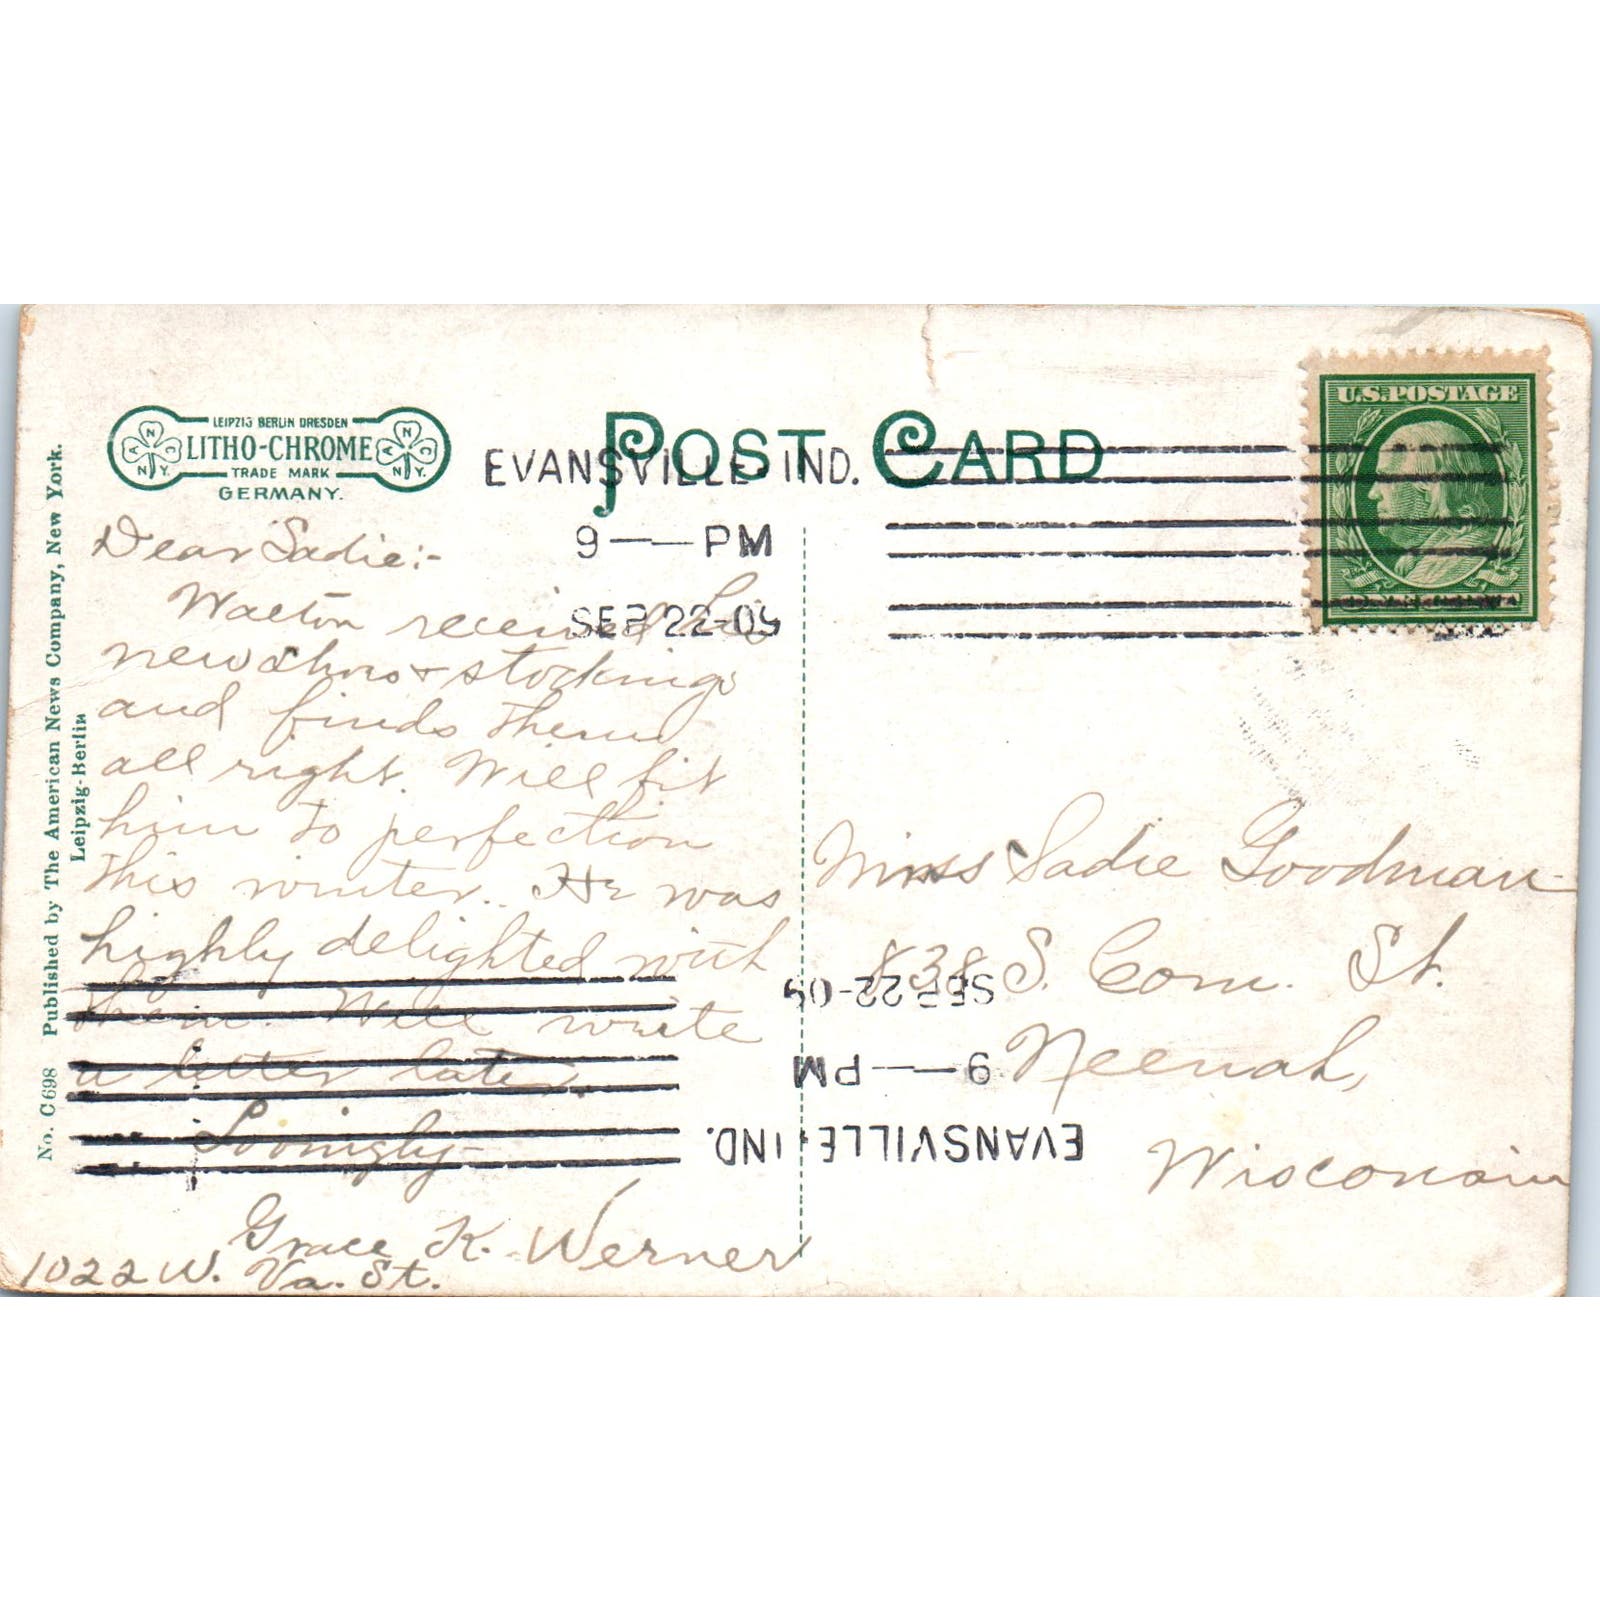 No. C698 Published by The American News Company, New York.
Leipzig-Berlin
LEIPZIG BERLIN DRESDEN
LITHO-CHROME
TRADE MARK
GERMANY.
A N C N.Y.
A N C N.Y.
POST CARD
EVANSVILLE, IND.
9 — PM
SEP 22-09
U.S. POSTAGE
Dear Sadie:-
Walton received his
new shoes & stockings
and finds them
all right. Will fit
him to perfection
this winter. He was
highly delighted with
them. Will write
a letter later.
Lovingly-
Grace K. Werner
1022 W. Va. St.
Miss Sadie Goodman
838 S. Com. St.
Neenah,
Wisconsin
SEP 22-09
9 — PM
EVANSVILLE, IND.